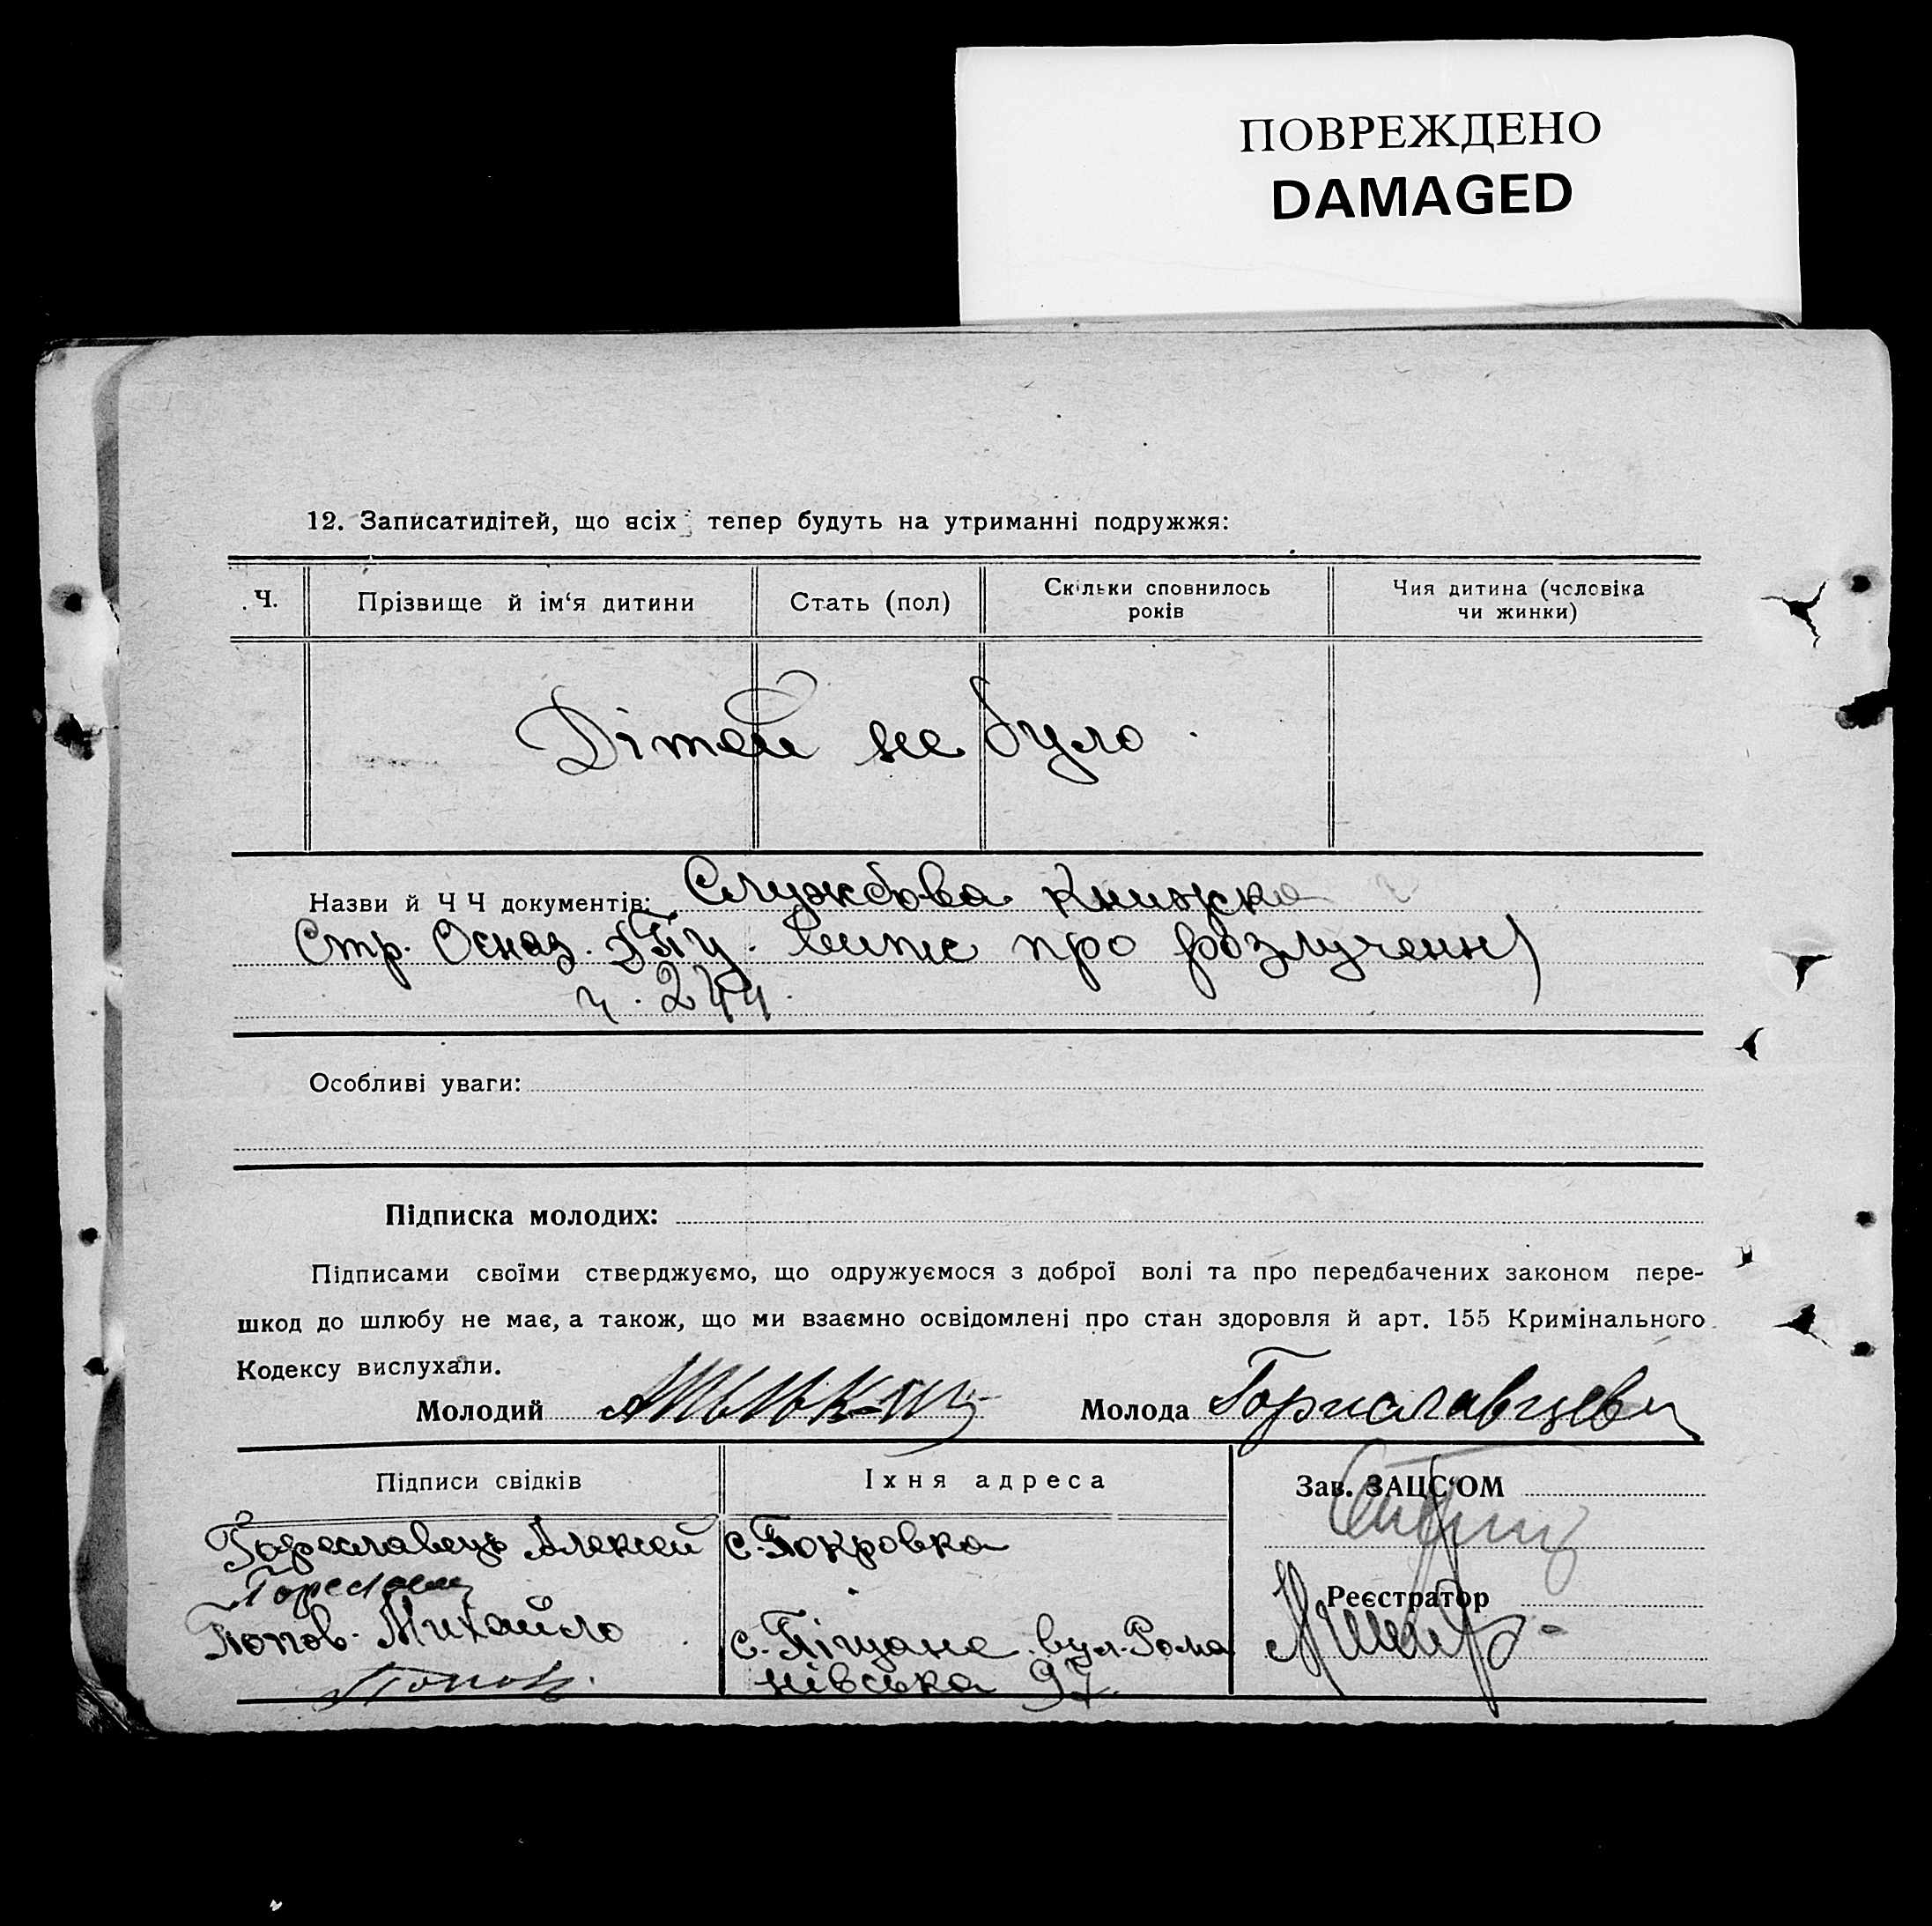 ПОВРЕЖДЕНО
DAMAGED
12. Записатидітей, що всіх тепер будуть на утриманні подружжя:
Ч. Прізвище й ім‘я дитини Стать (пол) Скільки сповнилось років Чия дитина (чоловіка чи жинки)
Дітей не було.
Назви й Ч Ч документів: Службова книжка
Стр. про розлучення
ч. 244.
Особливі уваги:
Підписка молодих:
Підписами своїми стверджуємо, що одружуємося з доброї волі та про передбачених законом пере-
шкод до шлюбу не має, а також, що ми взаємно освідомлені про стан здоровля й арт. 155 Кримінального
Кодексу вислухали.
Молодий Молода Гориславцева
Підписи свідків Їхня адреса Зав. ЗАЦС‘ОМ
Гореславець Алексей с. Покровка
Реєстратор
Попов Михайло с. Піщане вул. Рома
нівська 97.
Попов